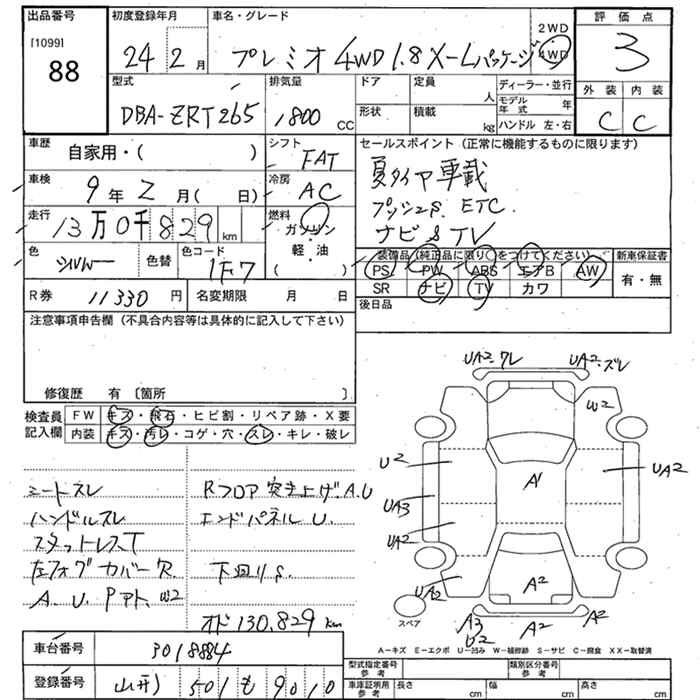 出品番号 初度登録年月 車名・グレード 評価点
[1099]
88
24 2月 プレミオ 4WD 1.8 X-Lパッケージ 2WD 4WD 3
型式 排気量 ドア 定員 人 ディーラー・並行 外装 内装
DBA-ZRT265 1800 CC 形状 積載 kg モデル年式 年 ハンドル 左・右 C C
車歴 自家用・( ) シフト FAT セールスポイント (正常に機能するものに限ります)
車検 9年 2月( 日) 冷房 AC 夏タイヤ車載
走行 13万0千829km 燃料 ガソリン・軽油 ( ) プッシュS. ETC.
ナビ & TV
色 シルバー 色替 色コード 1F7 装備品(純正品に限り○をつけてください) 新車保証書
PS PW ABS エアB AW 有・無
SR ナビ TV カワ
R券 11330円 名変期限 月 日 後日品
注意事項申告欄 (不具合内容等は具体的に記入して下さい)
修復歴 有 〔箇所 〕
検査員記入欄 FW キズ・飛石・ヒビ割・リペア跡・X要
内装 キズ・汚レ・コゲ・穴・スレ・キレ・破レ
シートスレ Rフロア 突き上げ.A.U
ハンドルスレ エンドパネル U.
スタットレスT
左フォグカバー欠. 下回りS.
A. U. Pアト. W2
オド 130,829 km
UA2・ワレ UA2・ズレ
W2
U2 A1 UA2
UA3
UA2
UA2 A2
スペア A3 W2 A2 A2
A－キズ E－エクボ U－凹み W－補修跡 S－サビ C－腐食 XX－取替済
車台番号 3018884
登録番号 501 も 9010
型式指定番号 参考 類別区分番号 参考
車庫証明用 参考 長さ cm 幅 cm 高さ cm